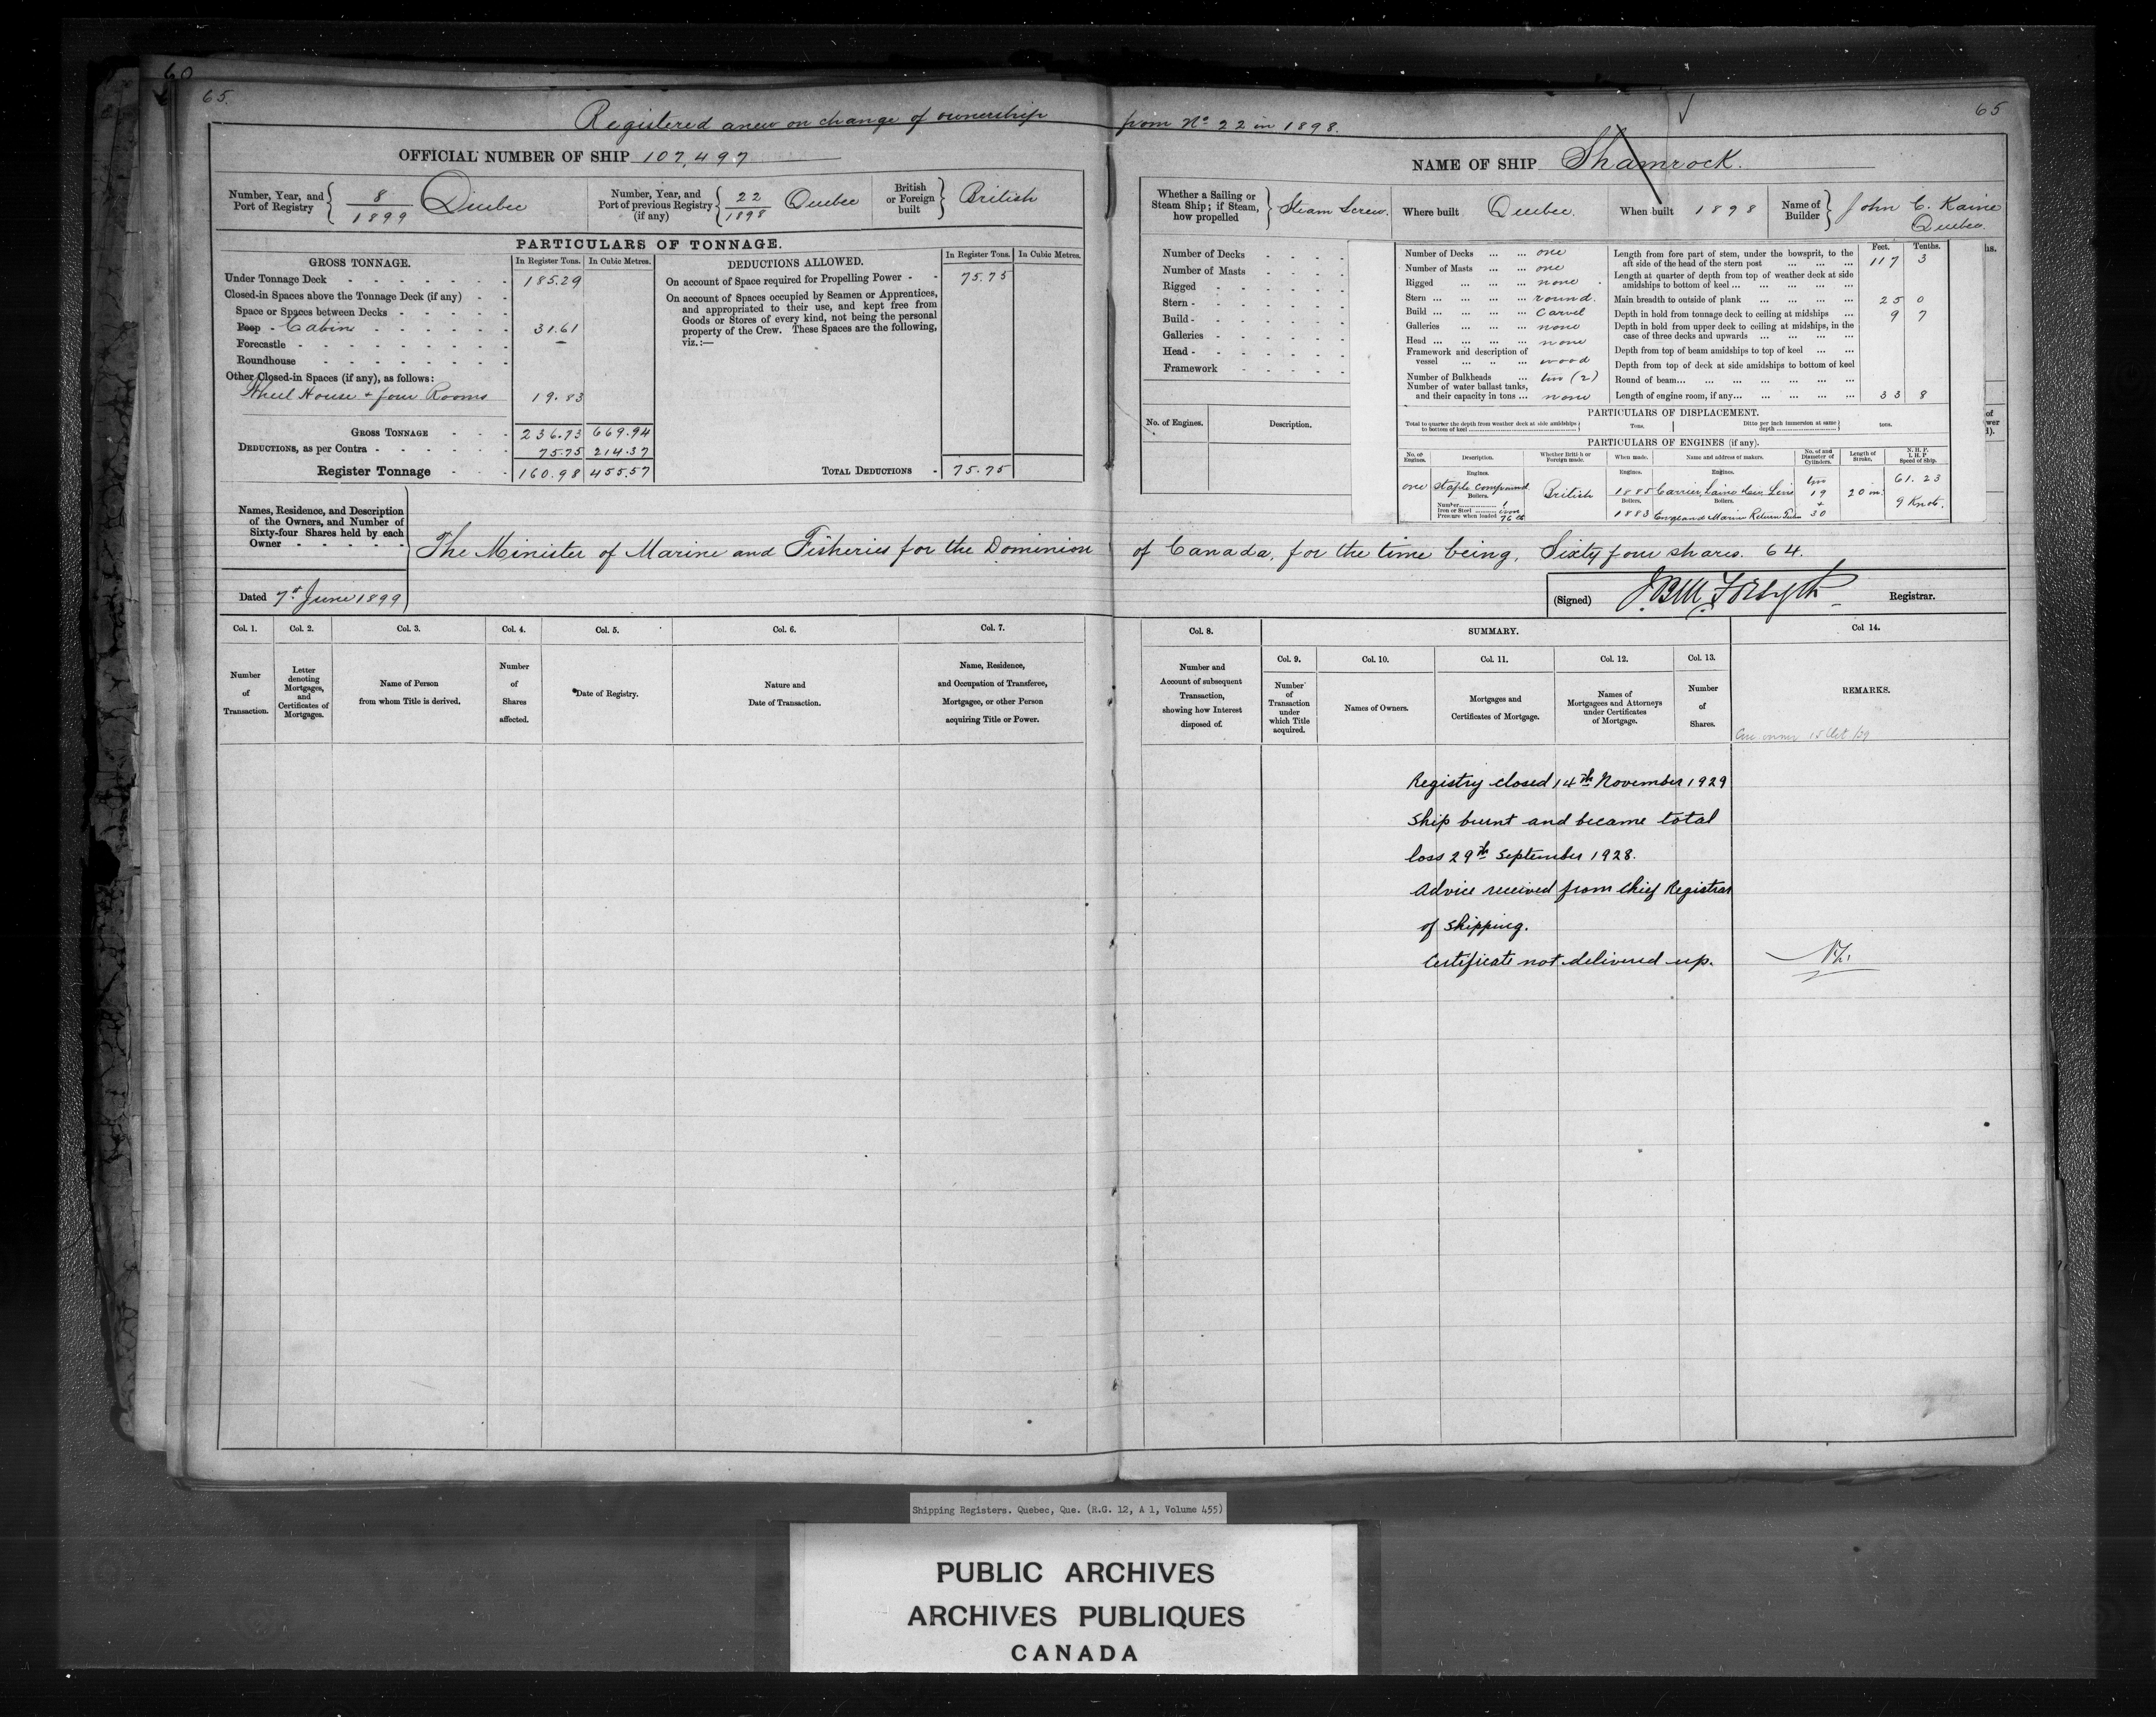 60
65.
65
Registered anew on change of ownership from No 22 in 1898.
OFFICIAL NUMBER OF SHIP 107,497
NAME OF SHIP Shamrock.
Number, Year, and Port of Registry 8/1899 Quebec
Number, Year, and Port of previous Registry (if any) 22/1898 Quebec
British or Foreign built British
Whether a Sailing or Steam Ship; if Steam, how propelled Steam Screw.
Where built Quebec.
When built 1898
Name of Builder John C. Kaine Quebec.
PARTICULARS OF TONNAGE.
GROSS TONNAGE. In Register Tons. In Cubic Metres.
Under Tonnage Deck 185.29
Closed-in Spaces above the Tonnage Deck (if any)
Space or Spaces between Decks
Poop Cabin 31.61
Forecastle
Roundhouse
Other Closed-in Spaces (if any), as follows:
Wheel House + four Rooms 19.83
GROSS TONNAGE 236.73 669.94
DEDUCTIONS, as per Contra 75.75 214.37
Register Tonnage 160.98 455.57
DEDUCTIONS ALLOWED. In Register Tons. In Cubic Metres.
On account of Space required for Propelling Power 75.75
On account of Spaces occupied by Seamen or Apprentices,
and appropriated to their use, and kept free from
Goods or Stores of every kind, not being the personal
property of the Crew. These Spaces are the following,
viz.:—
TOTAL DEDUCTIONS 75.75
Number of Decks
Number of Masts
Rigged
Stern
Build
Galleries
Head
Framework
No. of Engines. Description.
Number of Decks one
Number of Masts one
Rigged none
Stern round.
Build Carvel
Galleries none
Head none
Framework and description of vessel wood
Number of Bulkheads two (2)
Number of water ballast tanks, and their capacity in tons none
Feet. Tenths.
Length from fore part of stem, under the bowsprit, to the aft side of the head of the stern post 117 3
Length at quarter of depth from top of weather deck at side amidships to bottom of keel
Main breadth to outside of plank 25 0
Depth in hold from tonnage deck to ceiling at midships 9 7
Depth in hold from upper deck to ceiling at midships, in the case of three decks and upwards
Depth from top of beam amidships to top of keel
Depth from top of deck at side amidships to bottom of keel
Round of beam
Length of engine room, if any 33 8
PARTICULARS OF DISPLACEMENT.
Total to quarter the depth from weather deck at side amidships to bottom of keel Tons. Ditto per inch immersion at same depth tons.
PARTICULARS OF ENGINES (if any).
No. of Engines. Description. Whether British or Foreign made. When made. Name and address of makers. No. of and Diameter of Cylinders. Length of Stroke. N. H. P. I. H. P Speed of Ship.
Engines. Engines. Engines.
one Compound British 1885 Carrier, Laine 19 + 30 20 in. 61.23
Boilers. Boilers. Boilers.
Number 1
Iron or Steel iron
Pressure when loaded 76
1883 England Marine Return 9 Knots.
Names, Residence, and Description
of the Owners, and Number of
Sixty-four Shares held by each
Owner
The Minister of Marine and Fisheries for the Dominion of Canada, for the time being, Sixty four shares. 64.
Dated 7th June 1899
(Signed) J.B.M. Forsyth Registrar.
Col. 1. Col. 2. Col. 3. Col. 4. Col. 5. Col. 6. Col. 7.
Number of Transaction.
Letter denoting Mortgages, and Certificates of Mortgages.
Name of Person from whom Title is derived.
Number of Shares affected.
Date of Registry.
Nature and Date of Transaction.
Name, Residence, and Occupation of Transferee, Mortgagee, or other Person acquiring Title or Power.
Col. 8. SUMMARY. Col 14.
Col. 9. Col. 10. Col. 11. Col. 12. Col. 13.
Number and Account of subsequent Transaction, showing how Interest disposed of.
Number of Transaction under which Title acquired.
Names of Owners.
Mortgages and Certificates of Mortgage.
Names of Mortgagees and Attorneys under Certificates of Mortgage.
Number of Shares.
REMARKS.
Registry closed 14th November 1929
Ship burnt and became total
loss 29th September 1928.
Advice received from Chief Registrar
of Shipping.
Certificate not delivered up.
Shipping Registers. Quebec, Que. (R.G. 12, A 1, Volume 455)
PUBLIC ARCHIVES
ARCHIVES PUBLIQUES
CANADA